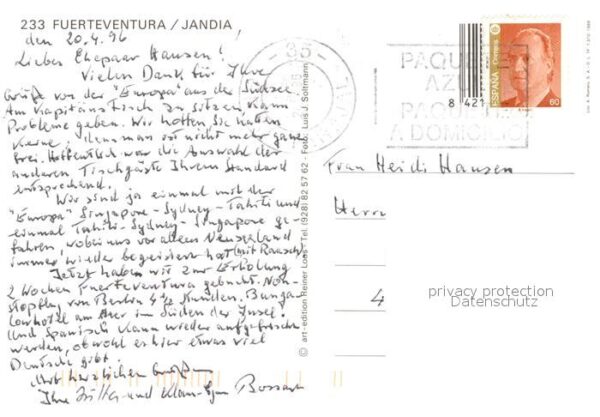 233 FUERTEVENTURA / JANDIA
den 20.4.96
Liebes Ehepaar Hansen!
Vielen Dank für Ihre
Grüße von der "Europa" aus der Südsee.
Am Kapitänstisch zu sitzen kann
Probleme geben. Wir hoffen Sie hatten
keine, denn man ist nicht mehr ganz
frei. Hoffentlich war die Auswahl der
anderen Tischgäste Ihrem Standard
entsprechend.
Wir sind ja einmal mit der
"Europa" Singapore-Sydney-Tahiti und
einmal Tahiti-Sydney-Singapore ge-
fahren, wobei uns vor allem Neuseeland
immer wieder begeistert hat (mit Raasch)
Jetzt haben wir zur Erholung
2 Wochen Fuerteventura gebucht. Non-
stopflug von Berlin 4 1/2 Stunden. Bunga-
lowhotel am Meer im Süden der Insel.
Und Spanisch kann wieder aufgefrischt
werden, obwohl es hier etwas viel
Deutsche gibt.
Mit herzlichen Grüßen
Ihre und Klaus-
© art-edition Reiner Loos · Tel. (928) 82 57 62 · Foto: Luis J. Soltmann
35
PAQUETE
AZUL
PAQUETE
A DOMICILIO
ESPAÑA
Correos
60
8 421
Frau Heidi Hansen
Herrn
4
privacy protection
Datenschutz